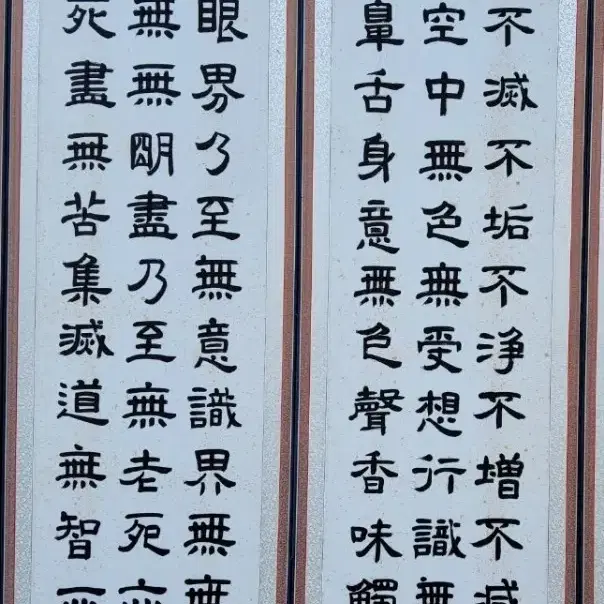 不滅不垢不淨不增不減
空中無色無受想行識無
鼻舌身意無色聲香味觸
眼界乃至無意識界無無
無無明盡乃至無老死亦
死盡無苦集滅道無智